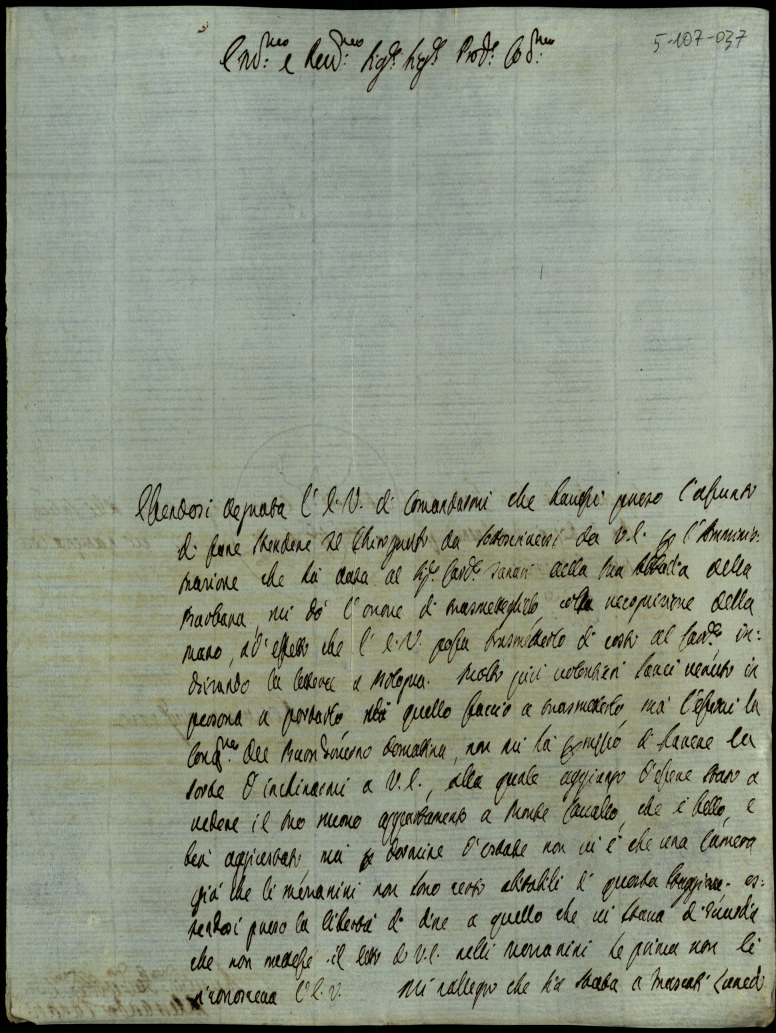 5-107-037
Em.mo e Rev.mo Sig.r Sig.r Prõn Col.mo
Essendosi degnata l'E.V. di comandarmi che havessi preso l'assunto
di fare stendere il Chirografo da sottoscriversi da V.E. per l'Amminis=
trazione che hà data al Sig.r Card.e della sua Abbadia della
mi dò l'onore di trasmetterglielo, colla recognizione della
mano, ad effetto che l'E.V. possa trasmetterlo di costì al Card.e in=
drizzando la lettera a Bologna. Molto più volentieri sarei venuto in
persona a portarlo di quello faccio a trasmetterlo, mà l'esservi la
Cong.ne del Buon Governo domattina, non mi hà permesso d'havere la
sorte d'inchinarmi a V.E., alla quale aggiungo d'essere stato a
vedere il suo nuovo appartamento a Monte Cavallo, che è bello, e
ben aggiustato, mà per dormire d'estate non vi è che una Camera
già che li mezzanini non sono certo abitabili di questa staggione. es=
sendosi preso la libertà di dire a quello che vi stava di Guardia
che non mettesse il letto di V.E. nelli mezzanini se prima non li
riconosceva l'E.V. Mi rallegro che sia stata a Frascati Lunedì